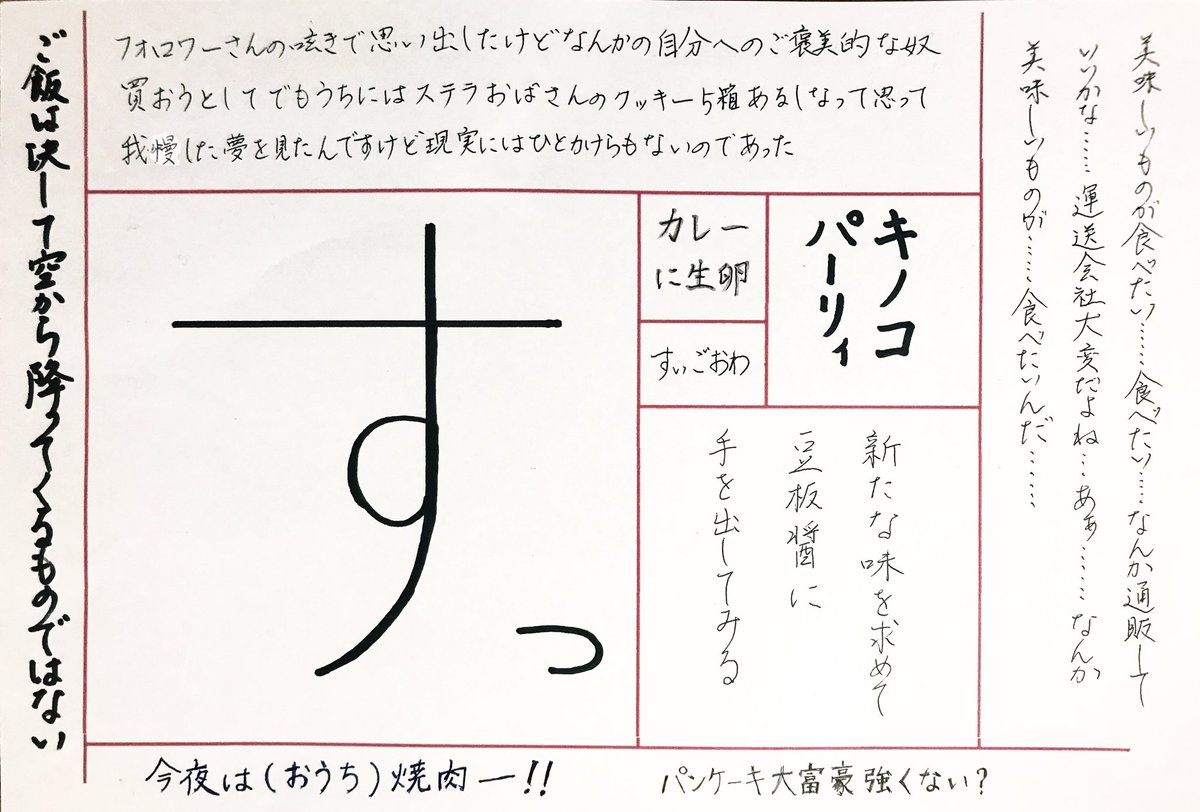 ご飯は決して空から降ってくるものではない
フォロワーさんの呟きで思い出したけどなんかの自分へのご褒美的な奴
買おうとしてでもうちにはステラおばさんのクッキー5箱あるしなって思って
我慢した夢を見たんですけど現実にはひとかけらもないのであった
美味しいものが食べたい……食べたい……なんか通販して
いいかな……運送会社大変だよね…あぁ……なんか
美味しいものが……食べたいんだ……
すっ
カレー
に生卵
すいごおわ
キノコ
パーリィ
新たな味を求めて
豆板醤に
手を出してみる
今夜は(おうち)焼肉ー!!
パンケーキ大富豪強くない?